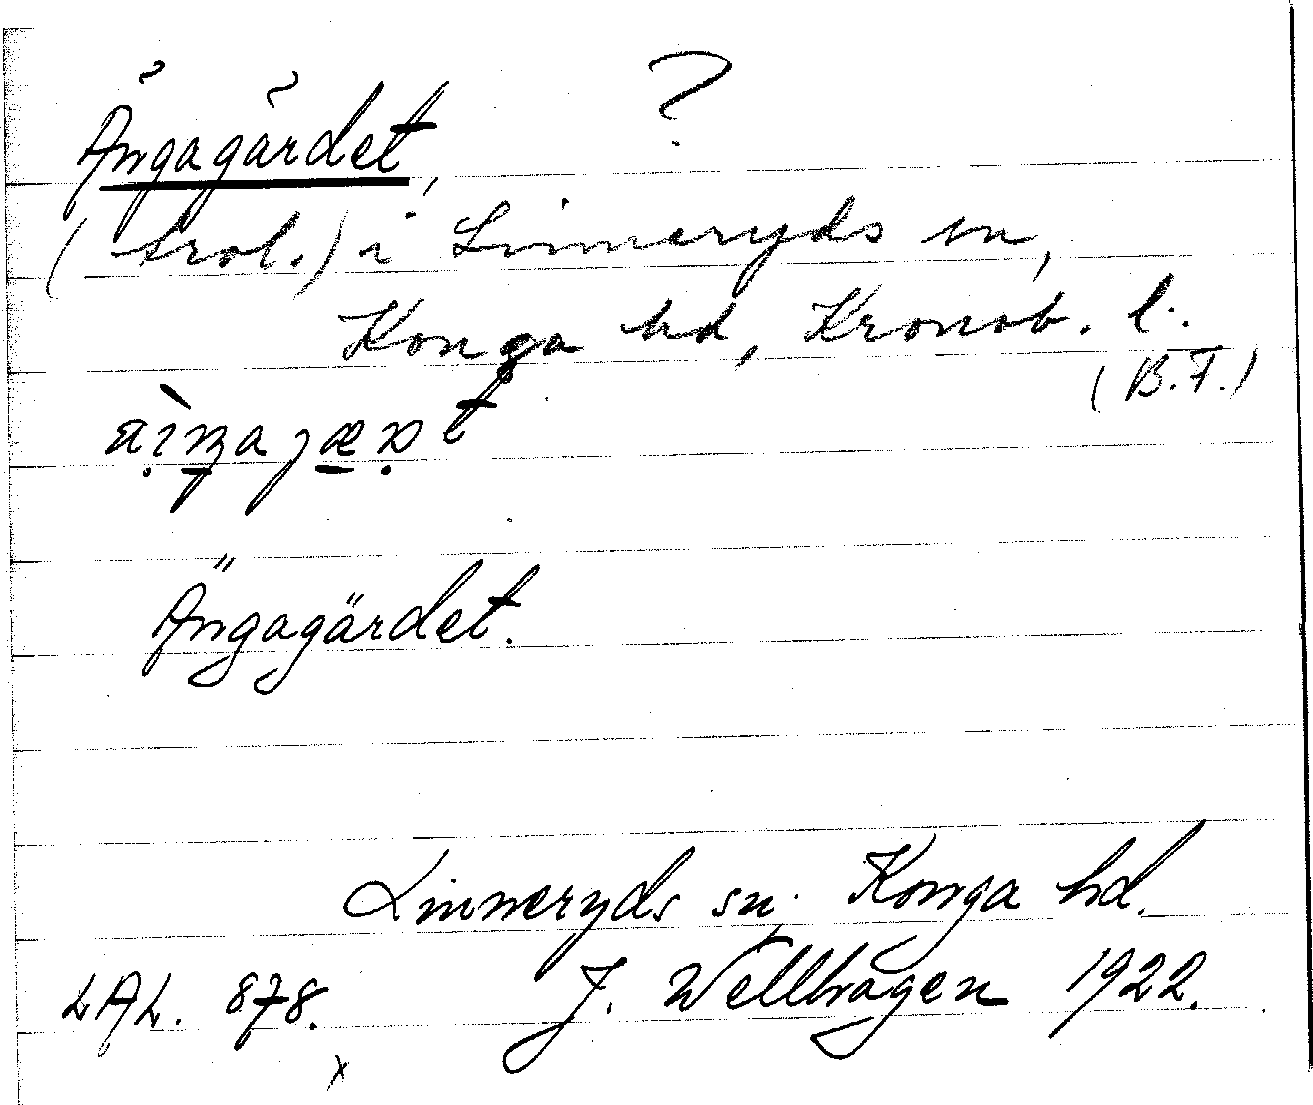 Ängagärdet, ?
(trol.) i Linneryds sn,
Konga hd, Kronob. l.
(B.F.)
Ängagärdet.
Linneryds sn. Konga hd.
LAL. 878. J. Wellhagen 1922.
x